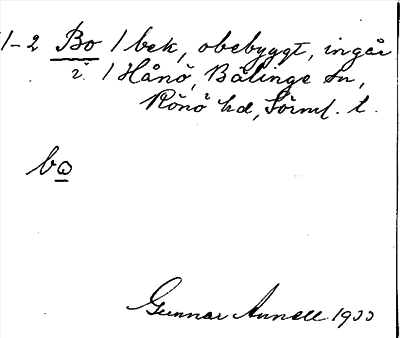 1-2 Bo / bek, obebyggt, ingår
i / Hånö, Bälinge sn,
Rönö hd, Sörml. l.
bo
Gunnar Annell 1933